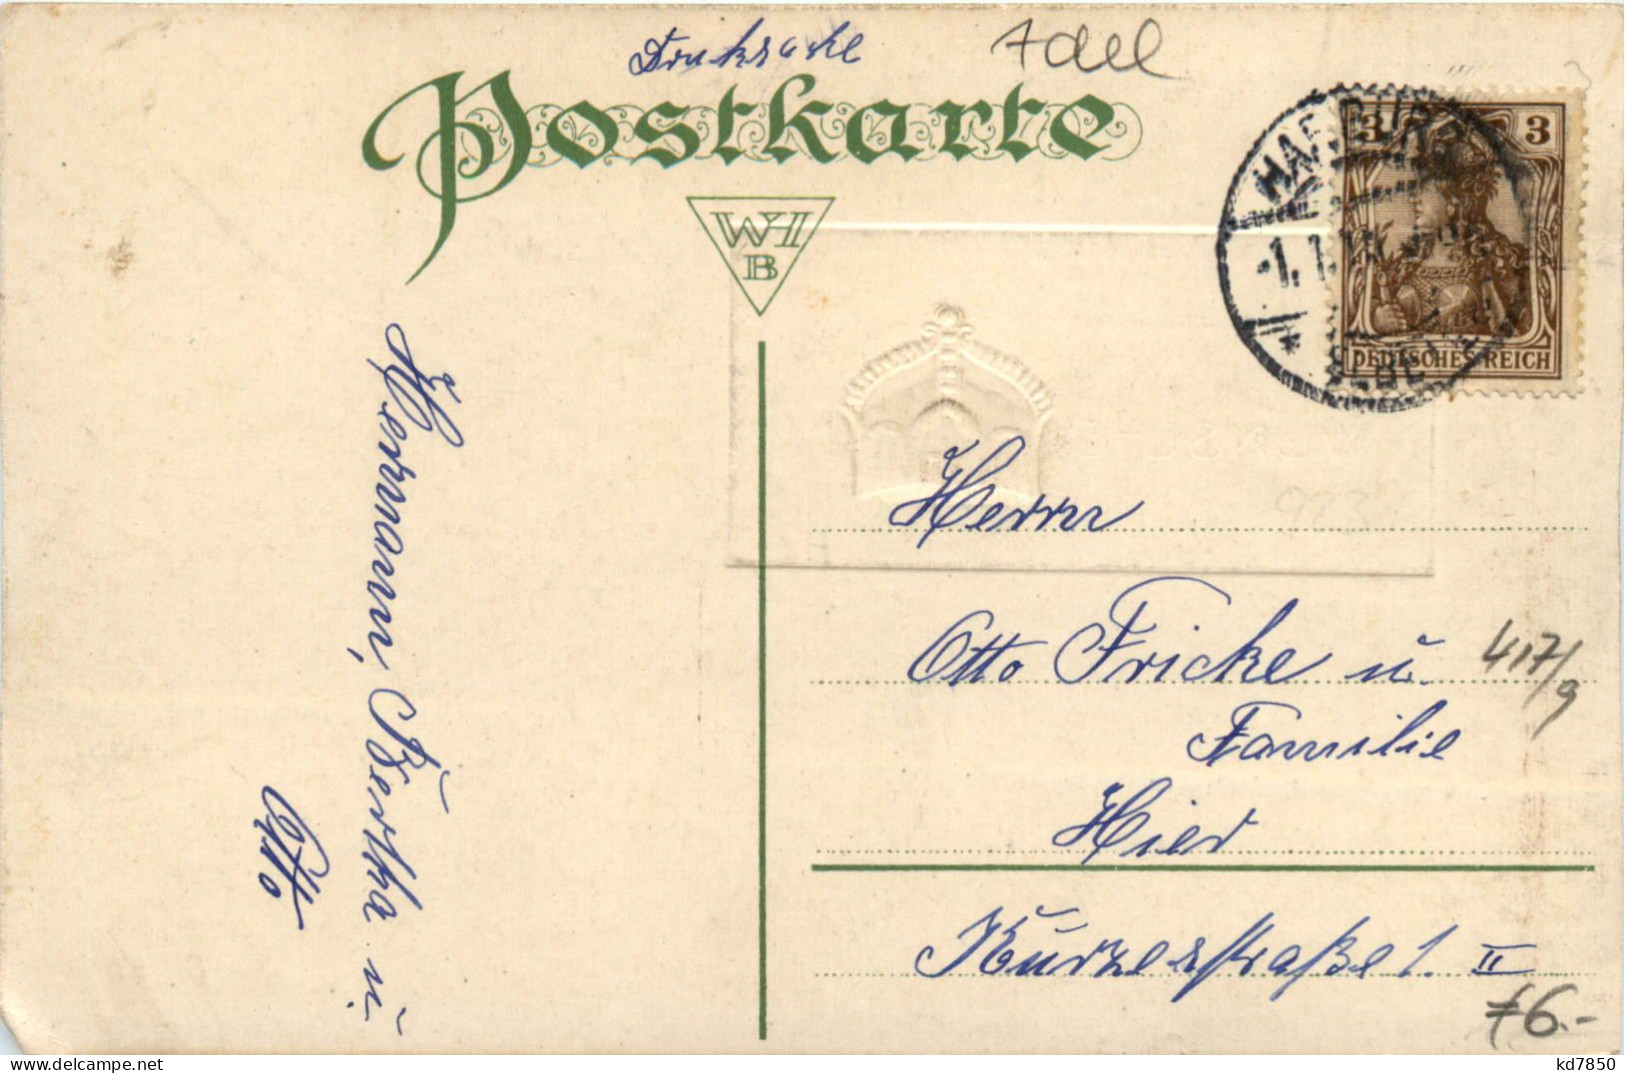 Drucksache
Adel
Postkarte
WH
B
3 3
DEUTSCHES REICH
HARBURG
-1.1.
ELBE
993
Herrn
Otto Fricke u.
Familie
Hier
Kurzestraße 1. II
417/9
Hermann, Bertha u.
Otto
6.-
kd7850